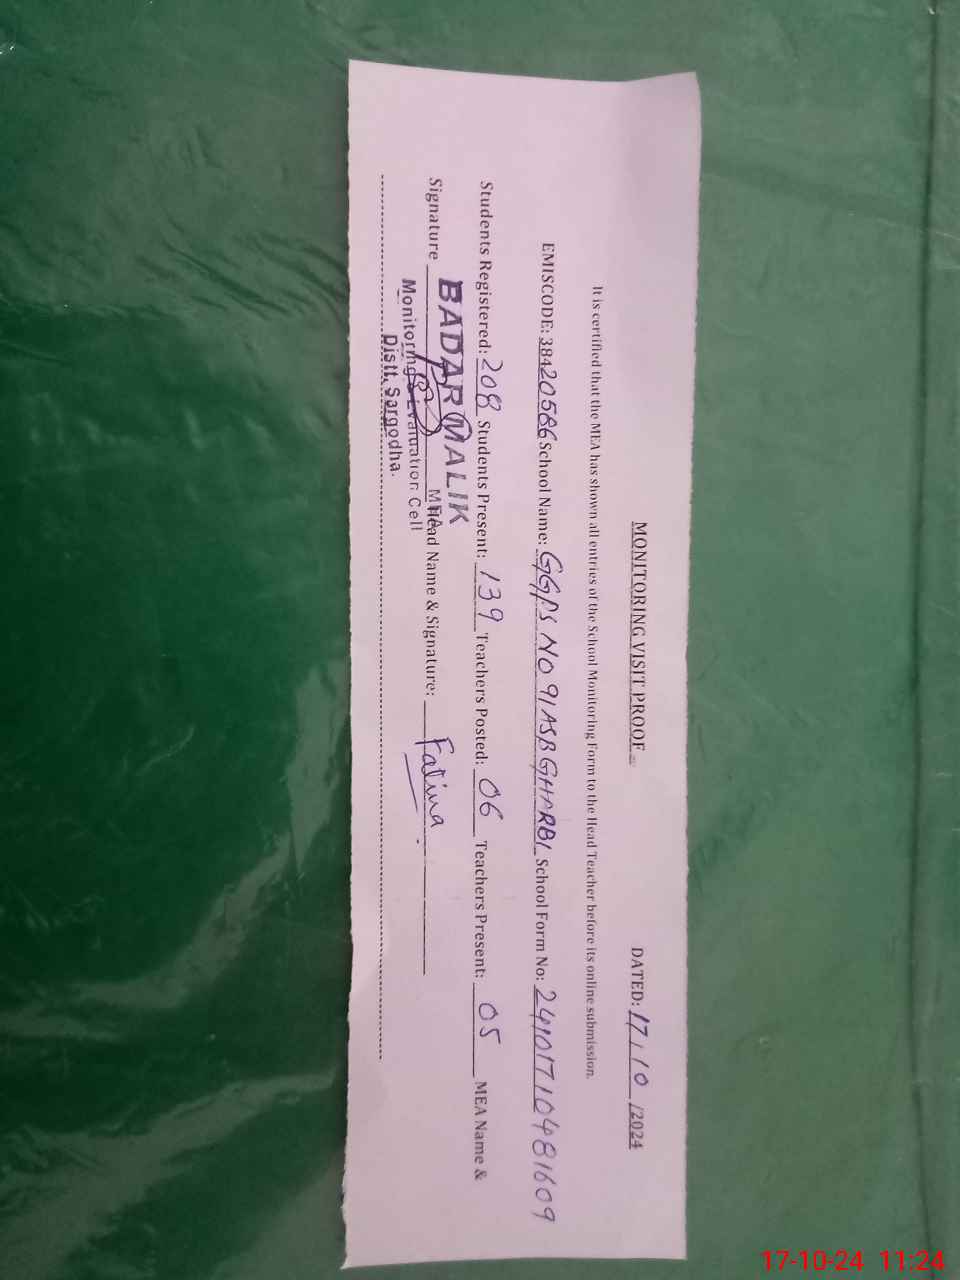 MONITORING VISIT PROOF
DATED: 17.10/2024
It is certified that the MEA has shown all entries of the School Monitoring Form to the Head Teacher before its online submission.
EMISCODE: 38420586 School Name: GGPS NO 91ASB GHARBI School Form No: 24101710481609
Students Registered: 208 Students Present: 139 Teachers Posted: 06 Teachers Present: 05 MEA Name &
Signature Head Name & Signature: Fatima
BADAR MALIK
MEA
Monitoring & Evaluation Cell
Distt. Sargodha.
17-10-24 11:24